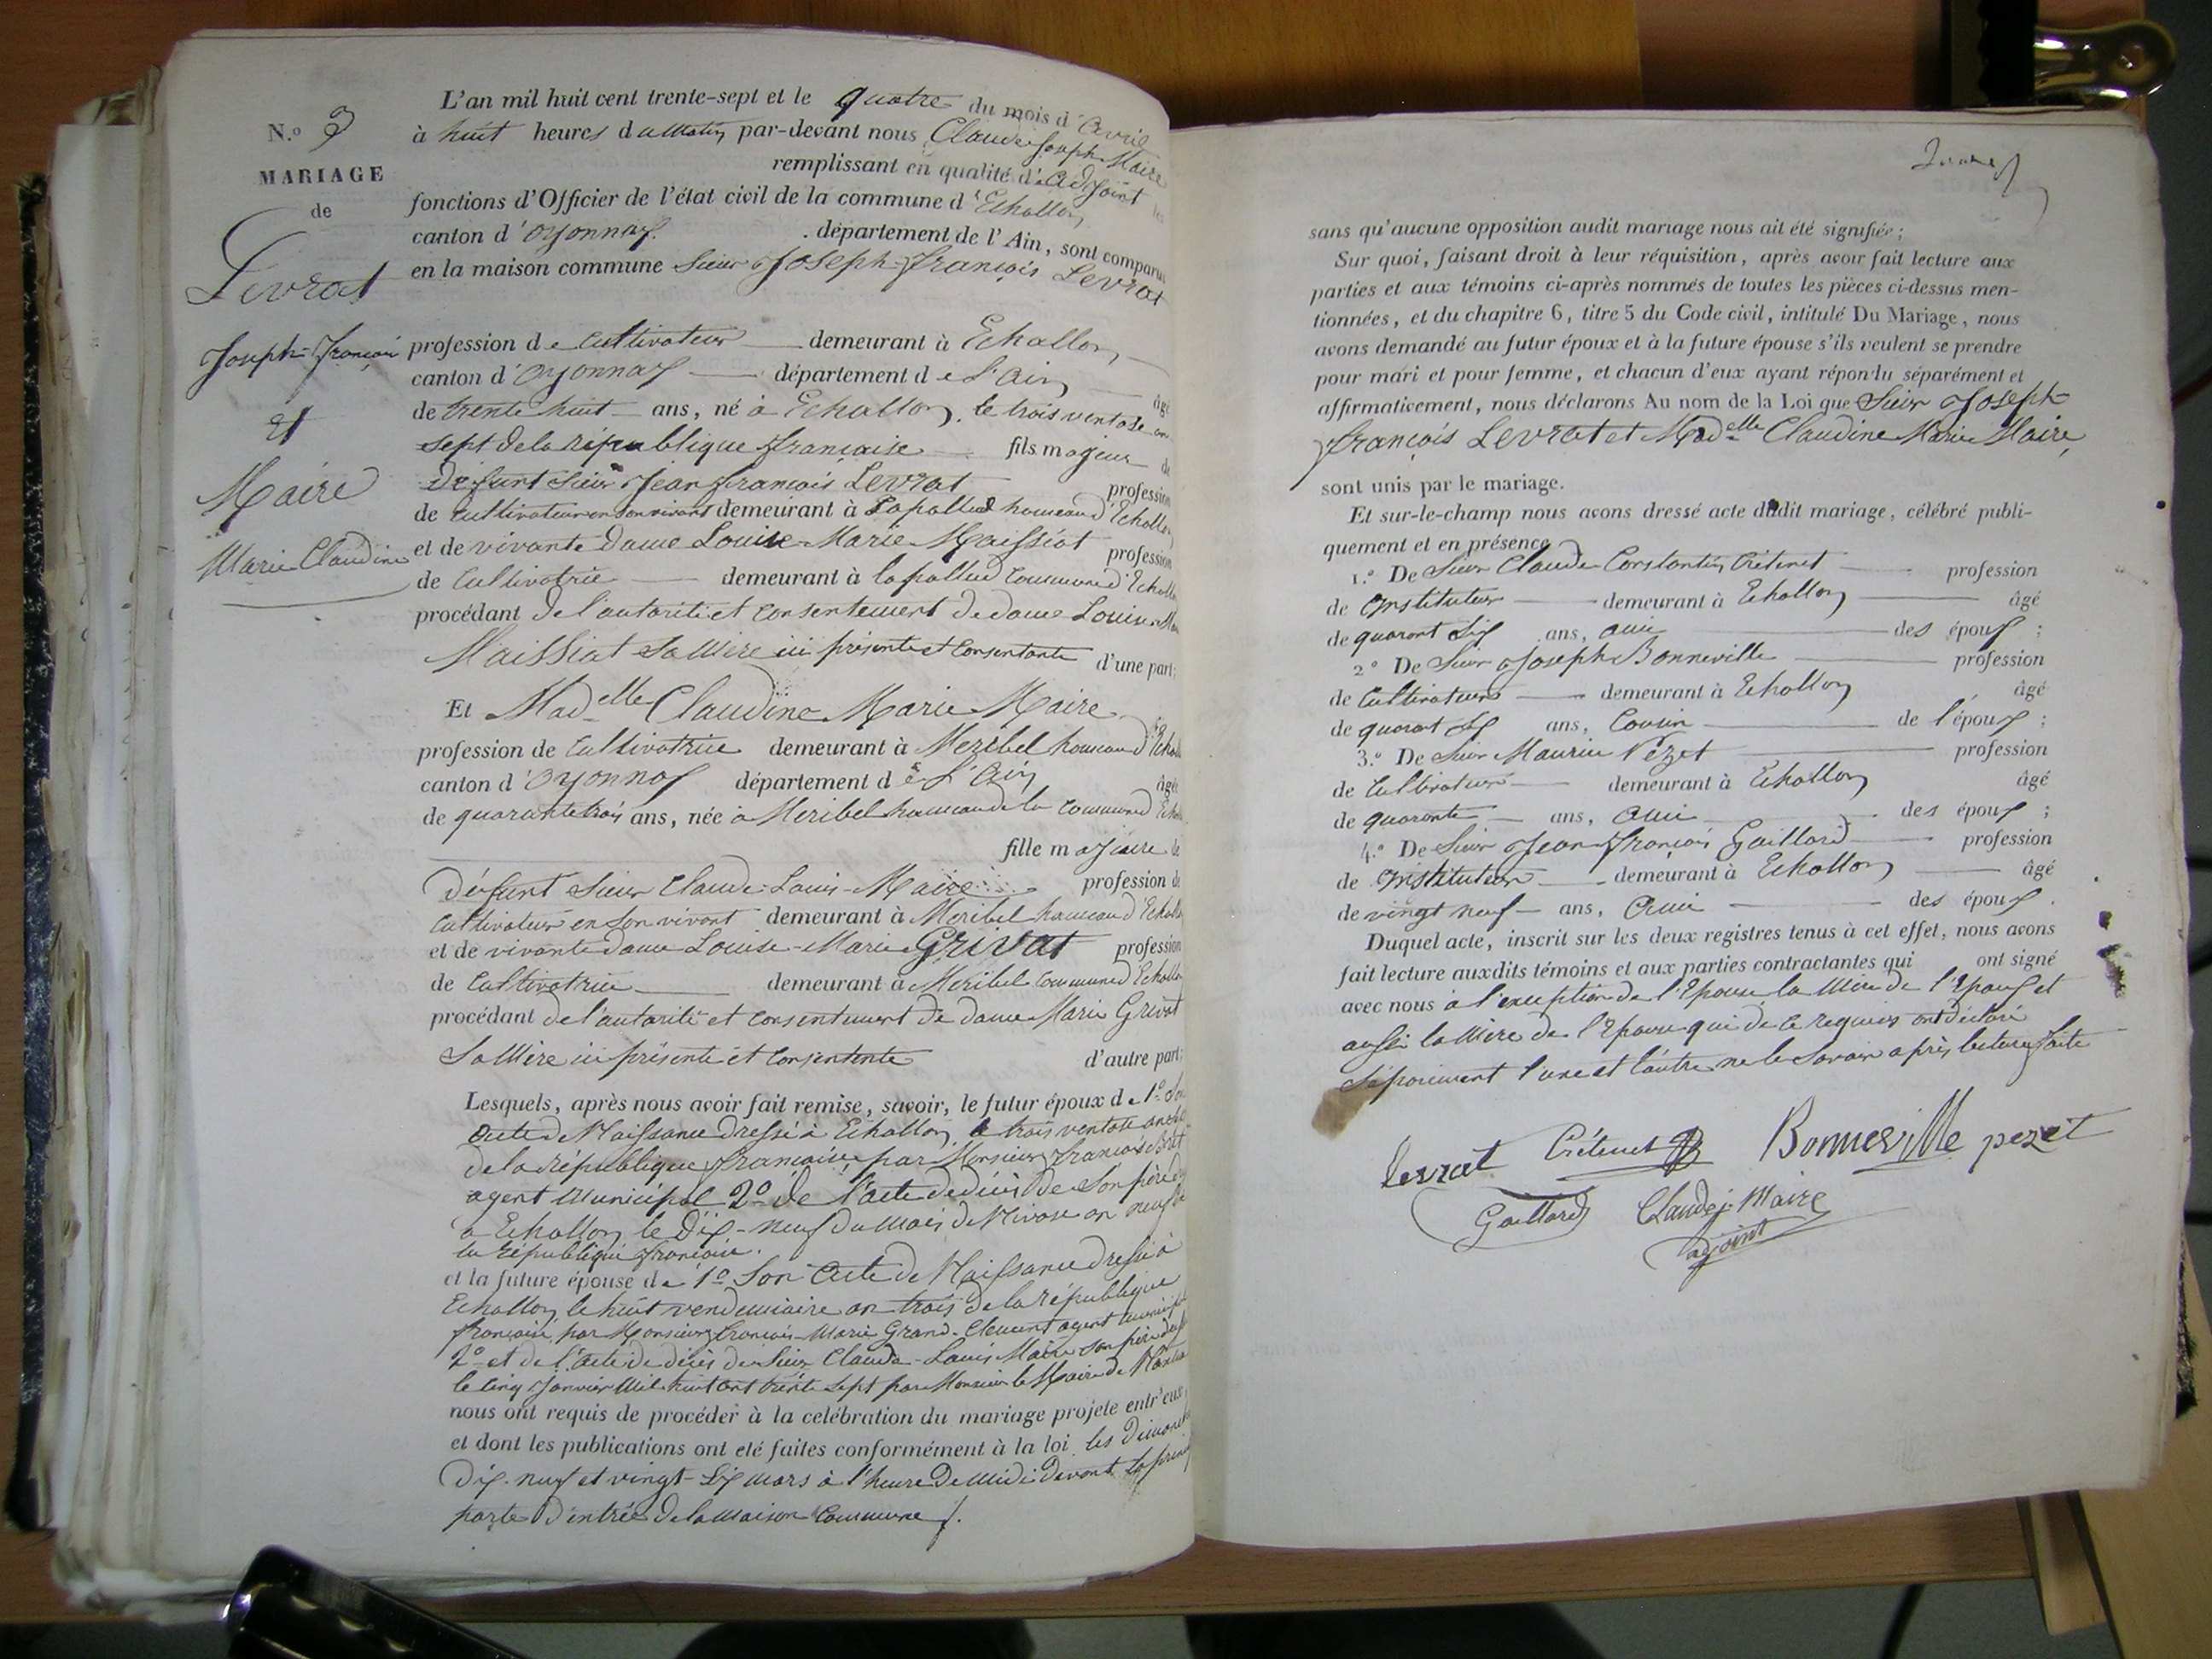 N.o 3
MARIAGE
de
Levrat
Joseph-françois
et
Maire
Marie Claudine
L'an mil huit cent trente-sept et le quatre du mois d'avril
à huit heures du matin, par-devant nous Claude Joseph Maire
remplissant en qualité d'adjoint les
fonctions d'Officier de l'état civil de la commune d'Echallon,
canton d'oyonnax. département de l'Ain, sont comparus
en la maison commune Sieur Joseph-françois Levrat
profession de cultivateur demeurant à Echallon,
canton d'oyonnax département de l'ain âgé
de trente huit ans, né à Echallon, le trois ventose an
sept de la république française fils majeur de
défunt Sieur Jean françois Levrat profession
de cultivateur en son vivant demeurant à Lapallud hameau d'Echallon
et de vivante dame Louise-Marie Maissiat profession
de Cultivatrice demeurant à lapallud commune d'Echallon
procédant de l'autorité et consentement de dame Louise Marie
Maissiat Sa Mère ici présente et consentante d'une part;
Et Madelle Claudine Marie Maire
profession de Cultivatrice demeurant à Meribel hameau d'Echallon
canton d'oyonnax département de l'ain âgée
de quarante trois ans, née à Meribel hameau de la commune d'Echallon
fille majeure de
défunt Sieur Claude-Louis-Maire profession de
Cultivateur en son vivant demeurant à Meribel hameau d'Echallon
et de vivante dame Louise-Marie Grivat profession
de Cultivatrice demeurant à Meribel commune d'Echallon
procédant de l'autorité et consentement de dame Marie Grivat
Sa Mère ici présente et consentente d'autre part;
Lesquels, après nous avoir fait remise, savoir, le futur époux de 1o Son
acte de Naissance dressé à Echallon, le trois ventose an sept
de la république française par Monsieur françois
agent municipal 2o de l'acte de décès de Son père
à Echallon le Dix-neuf du mois de Nivose an neuf de
la république française.
et la future épouse de 1o Son acte de Naissance dressé à
Echallon le huit vendemiaire an trois de la république
française, par Monsieur françois-Marie Grand-Clement agent municipal
2o et de l'acte de décès de Sieur Claude-Louis Maire son père
le cinq Janvier mil huit cent trente Sept par Monsieur le Maire de
nous ont requis de procéder à la celébration du mariage projeté entr'eux,
et dont les publications ont eté faites conformément à la loi les dimanches
Dix-neuf et vingt-Six mars à l'heure de midi devant la
porte d'entrée de la maison commune.
sans qu'aucune opposition audit mariage nous ait été signifiée;
Sur quoi, faisant droit à leur réquisition, après avoir fait lecture aux
parties et aux témoins ci-après nommés de toutes les pièces ci-dessus men-
tionnées, et du chapitre 6, titre 5 du Code civil, intitulé Du Mariage, nous
avons demandé au futur époux et à la future épouse s'ils veulent se prendre
pour mari et pour femme, et chacun d'eux ayant répondu séparément et
affirmativement, nous déclarons Au nom de la Loi que Sieur Joseph-
françois Levrat et Madelle Claudine Marie Maire,
sont unis par le mariage.
Et sur-le-champ nous avons dressé acte dudit mariage, célébré publi-
quement et en présence
1.o De Sieur Claude Constantin Crétenet profession
de instituteur demeurant à Echallon âgé
de quarant Six ans, ami des époux;
2o De Sieur Joseph Bonneville profession
de Cultivateur demeurant à Echallon âgé
de quarant Six ans, cousin de l'époux;
3.o De Sieur Maurice Pezet profession
de Cultivateur demeurant à Echallon âgé
de quarante ans, ami des époux;
4.o De Sieur Jean-françois Gaillard profession
de instituteur demeurant à Echallon âgé
de vingt neuf ans, ami des époux.
Duquel acte, inscrit sur les deux registres tenus à cet effet, nous avons
fait lecture auxdits témoins et aux parties contractantes qui ont signé
avec nous à l'exception de l'Epouse la Mère de l'Epoux et
aussi la Mère de l'Epouse qui de ce requises ont déclaré
séparément l'une et l'autre ne le Savoir après lecture faite
Levrat Crétenet Bonneville pezet
Gaillard Claude j. Maire
adjoint